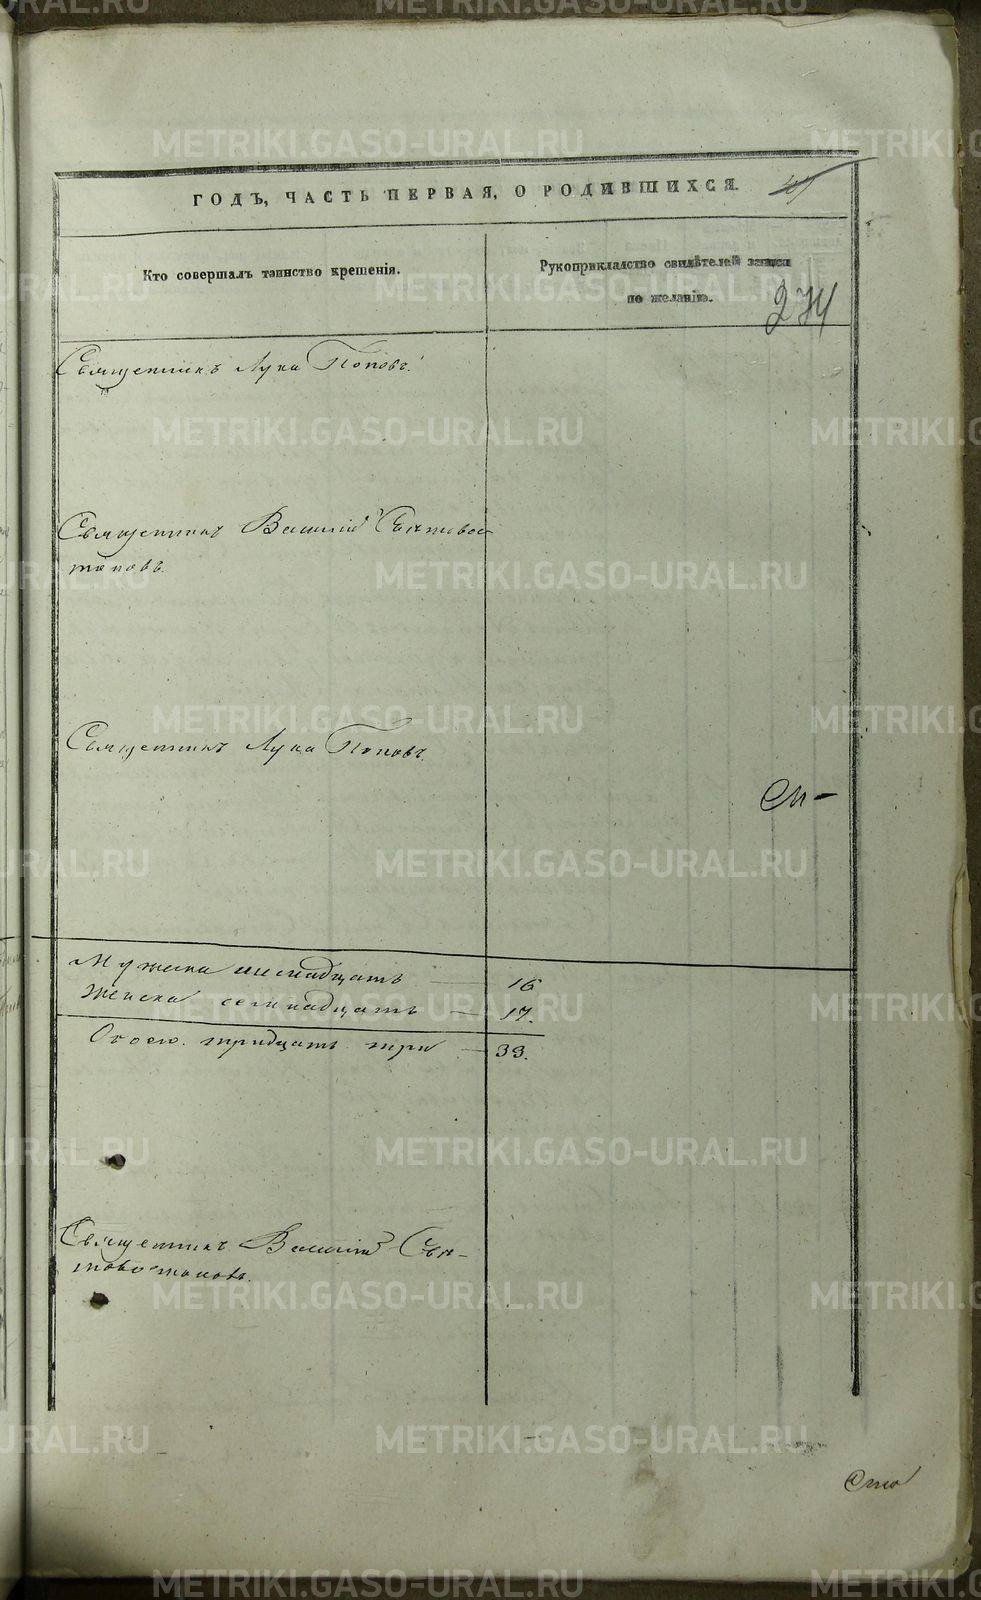 ГОДЪ, ЧАСТЬ ПЕРВАЯ, О РОДИВШИХСЯ.
Кто совершалъ таинство крещенія.
Рукоприкладство свидѣтелей записи
по желанію.
274
Священникъ Лука Поповъ.
Священникъ Василій Святовос
токовъ.
Священникъ Лука Поповъ.
Мужеска шеснадцать — 16
Женска семнадцать — 17.
Обоего тридцать три — 33.
Священникъ Василій Свя-
товостоковъ.
METRIKI.GASO-URAL.RU